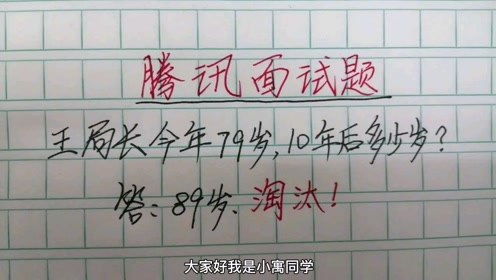 腾讯面试题
王局长今年79岁,10年后多少岁?
答:89岁.淘汰!
大家好我是小寓同学